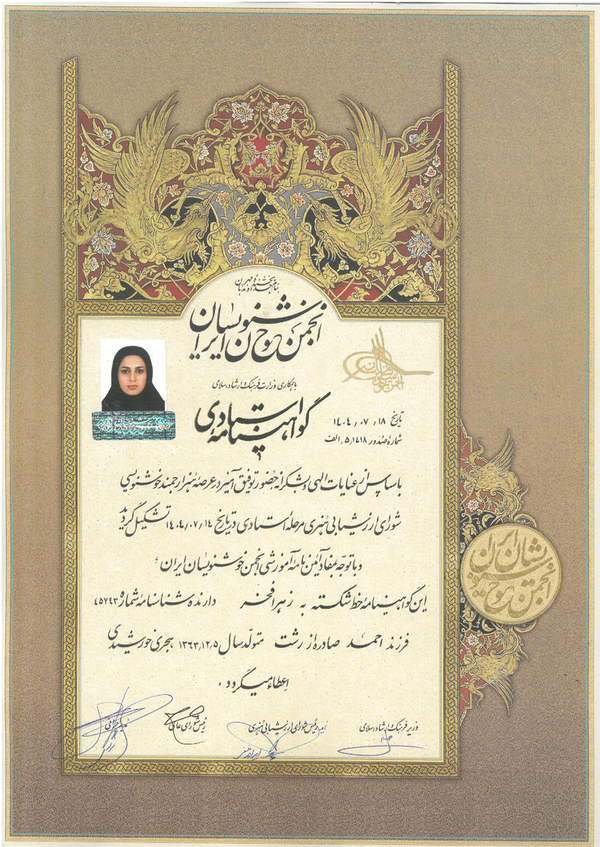 بنام خداوند بخشنده مهربان
انجمن خوشنویسان ایران
با همکاری وزارت فرهنگ و ارشاد اسلامی
گواهینامه استادی
تاریخ ۱۴۰۴/۰۷/۱۸
شماره صدور ۵٫۱۷۱۸٫الف
با سپاس از عنایات الهی و بشکرانه حضور توفیق آمیز در عرصه هنر ارجمند خوشنویسی
شورای ارزشیابی هنری مرحله استادی در تاریخ ۱۴۰۴/۰۷/۱۴ تشکیل گردید
و با توجه بمفاد آئین نامه آموزشی انجمن خوشنویسان ایران ؛
این گواهینامه خط شکسته به زهرا فخر دارنده شناسنامه شماره ۴۵۷۲۳
فرزند احمد صادره از رشت متولد سال ۱۳۶۳٫۱۲٫۵ هجری خورشیدی
اعطاء میگردد.
وزیر فرهنگ و ارشاد اسلامی
رئیس شورای ارزشیابی هنری
رئیس شورای عالی
انجمن خوشنویسان ایران